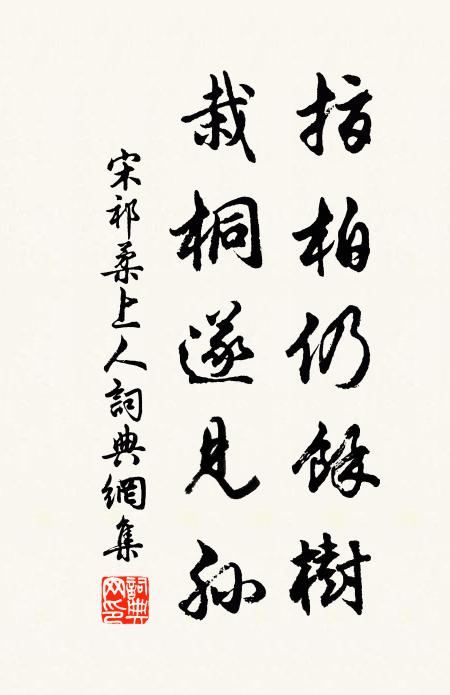 指柏仍餘樹
栽桐遂見孫
宋祁柔上人詞典網集
詞典網印